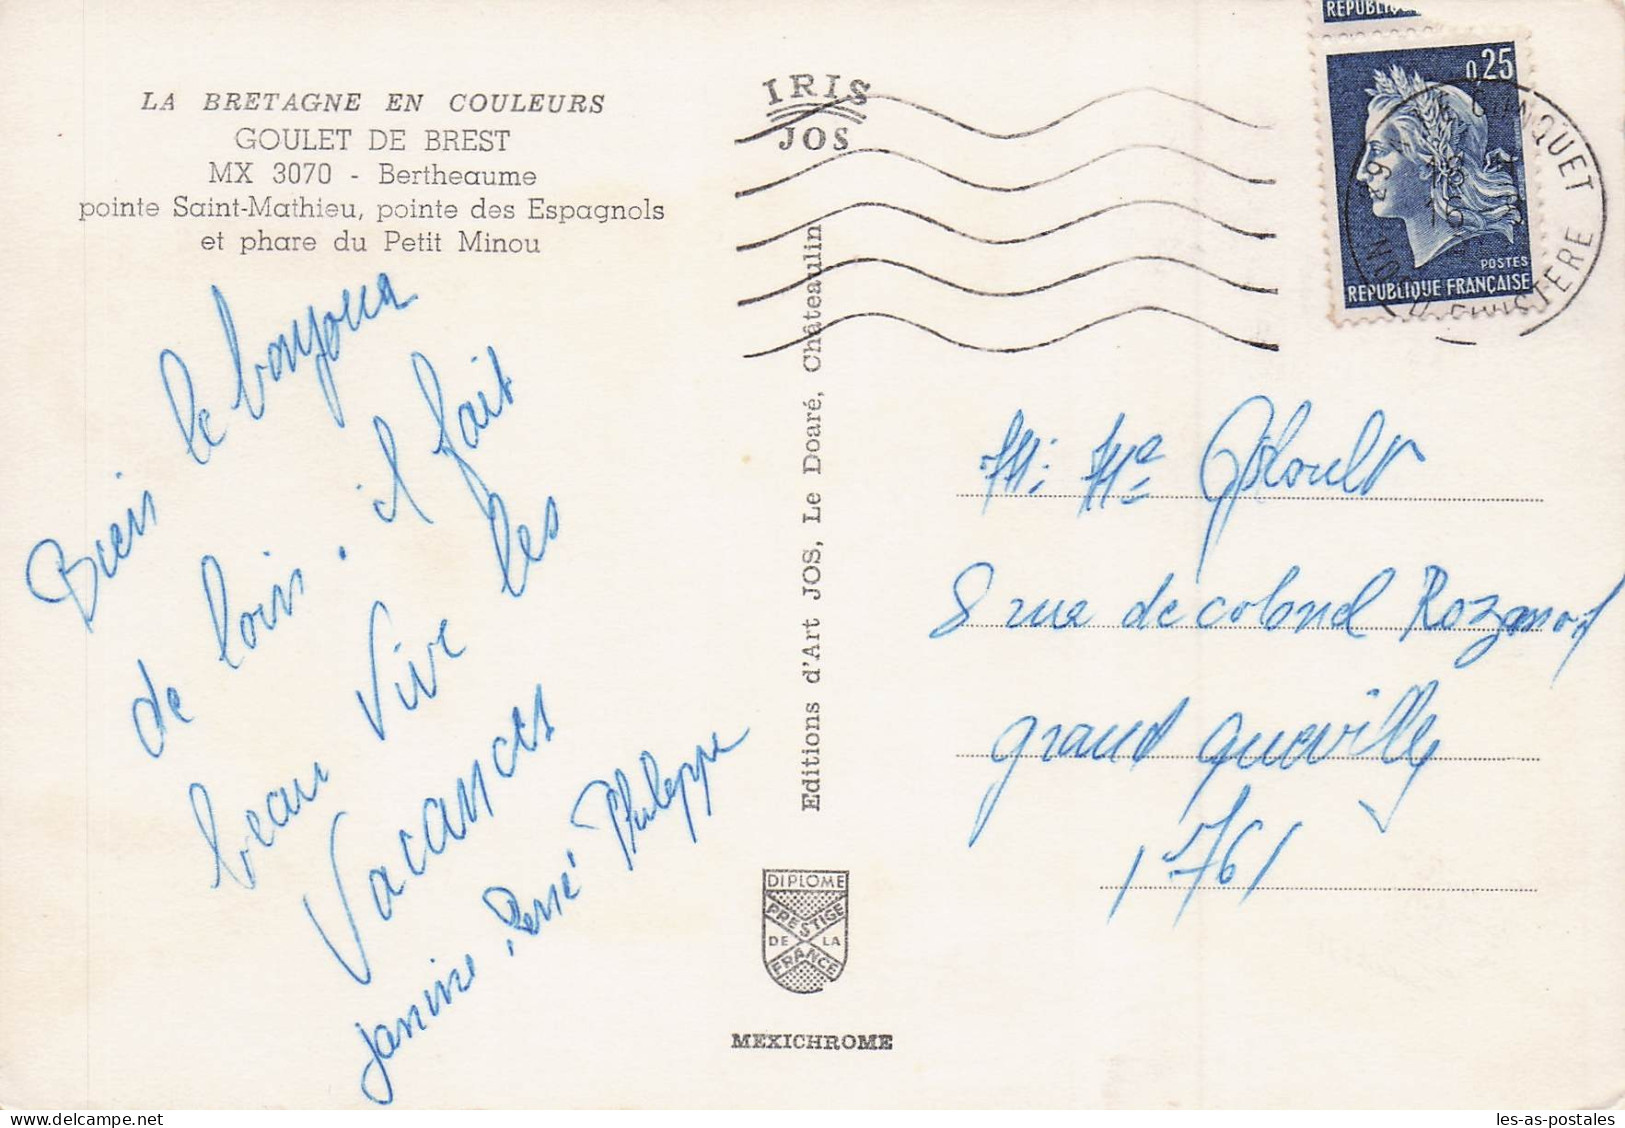 LA BRETAGNE EN COULEURS
GOULET DE BREST
MX 3070 - Bertheaume
pointe Saint-Mathieu, pointe des Espagnols
et phare du Petit Minou
Bien le bonjour
de loin. il fait
beau Vive les
Vacances
janine, René Philippe
IRIS
JOS
Editions d'Art JOS, Le Doaré, Châteaulin
DIPLOME
PRESTIGE
DE LA
FRANCE
MEXICHROME
REPUBLIQUE
0,25
POSTES
REPUBLIQUE FRANÇAISE
CONQUET
NORD FINISTERE
29
M. Me
8 rue de colonel Rozanof
grand quevilly
76
les-as-postales